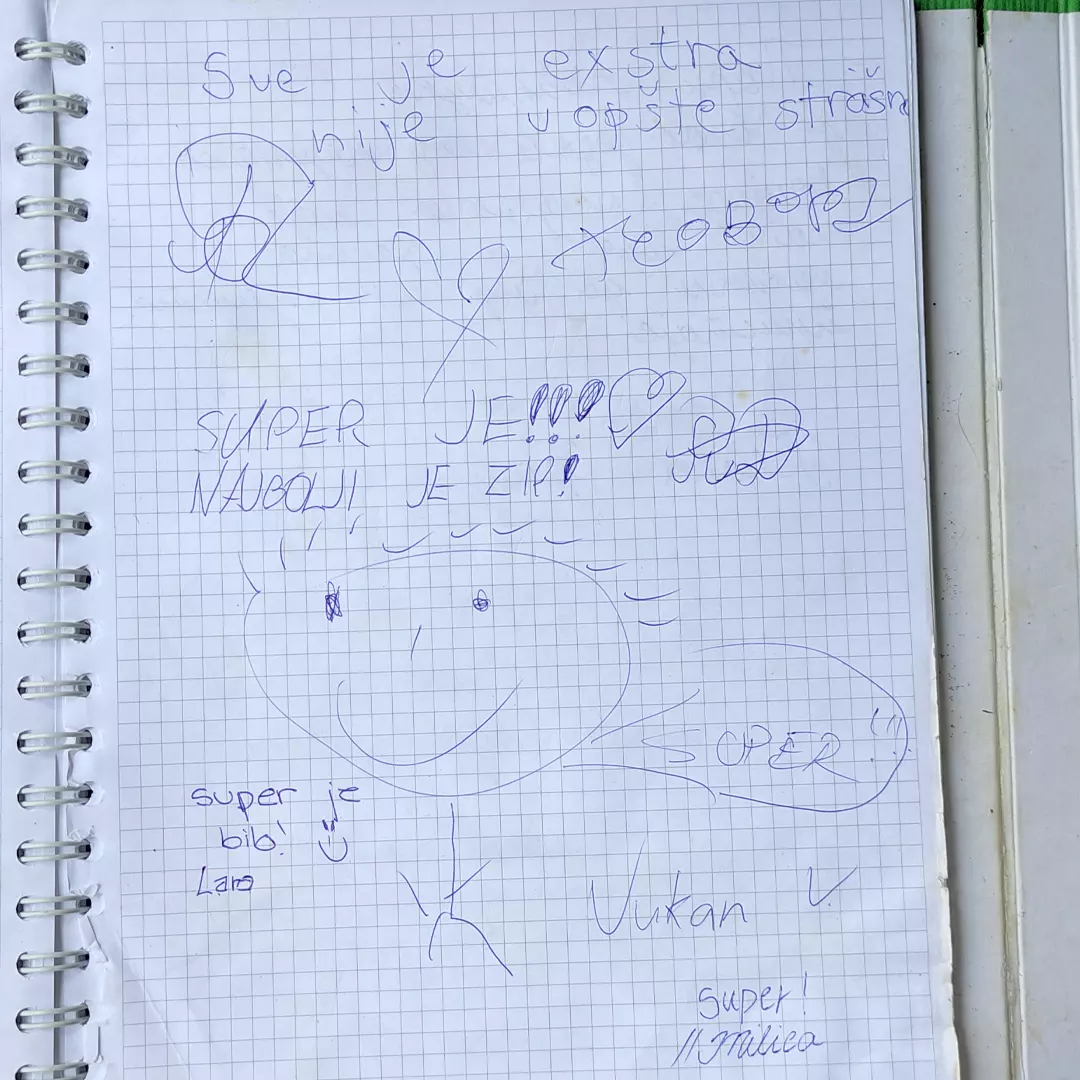 Sve je exstra
nije vopšte strašn
SUPER JE!!!
NAJBOLJI JE ZIP!
SUPER!!!
super je
bib!
Lara
Vukan V.
super!
Milica